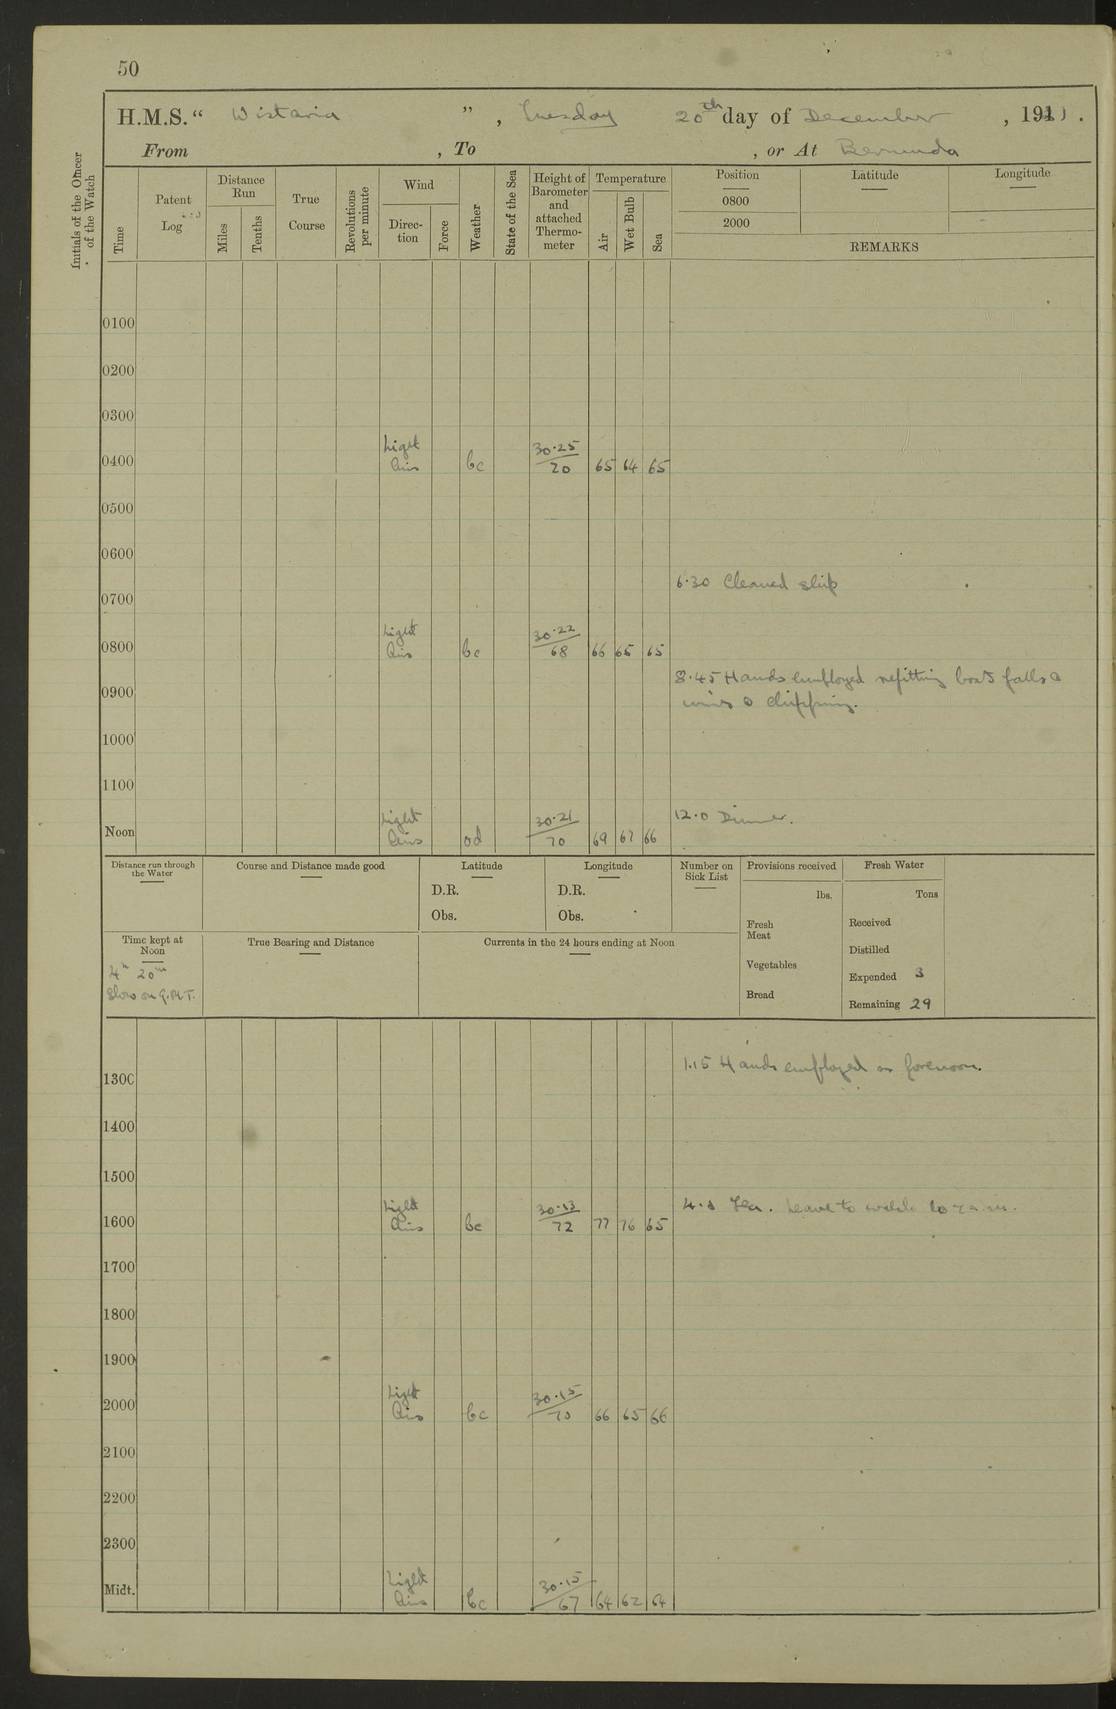 50
H.M.S. “ Wistaria ” , Tuesday 20th day of December , 1921 .
From , To , or At Bermuda
Initials of the Officer of the Watch
Time
Patent Log
Distance Run
Miles
Tenths
True Course
Revolutions per minute
Wind
Direc-tion
Force
Weather
State of the Sea
Height of Barometer and attached Thermo-meter
Temperature
Air
Wet Bulb
Sea
Position Latitude Longitude
0800
2000
REMARKS
0100
0200
0300
0400 Light Airs bc 30.25 / 70 65 64 65
0500
0600
6.30 Cleaned ship
0700
0800 Light Airs bc 30.22 / 68 66 65 65
8.45 Hands employed refitting boats falls &
0900
wires & chipping.
1000
1100
12.0 Dinner.
Noon Light Airs od 30.21 / 70 69 67 66
Distance run through the Water
Course and Distance made good
Latitude
D.R.
Obs.
Longitude
D.R.
Obs.
Number on Sick List
Provisions received
lbs.
Fresh Meat
Vegetables
Bread
Fresh Water
Tons
Received
Distilled
Expended 3
Remaining 29
Time kept at Noon
4h 20m
Slow on G.M.T.
True Bearing and Distance
Currents in the 24 hours ending at Noon
1.15 Hands employed as forenoon.
1300
1400
1500
4.0 Tea. Leave to watch to 7 a.m.
1600 Light Airs bc 30.13 / 72 77 76 65
1700
1800
1900
2000 Light Airs bc 30.15 / 70 66 65 66
2100
2200
2300
Midt. Light Airs bc 30.15 / 67 64 62 64